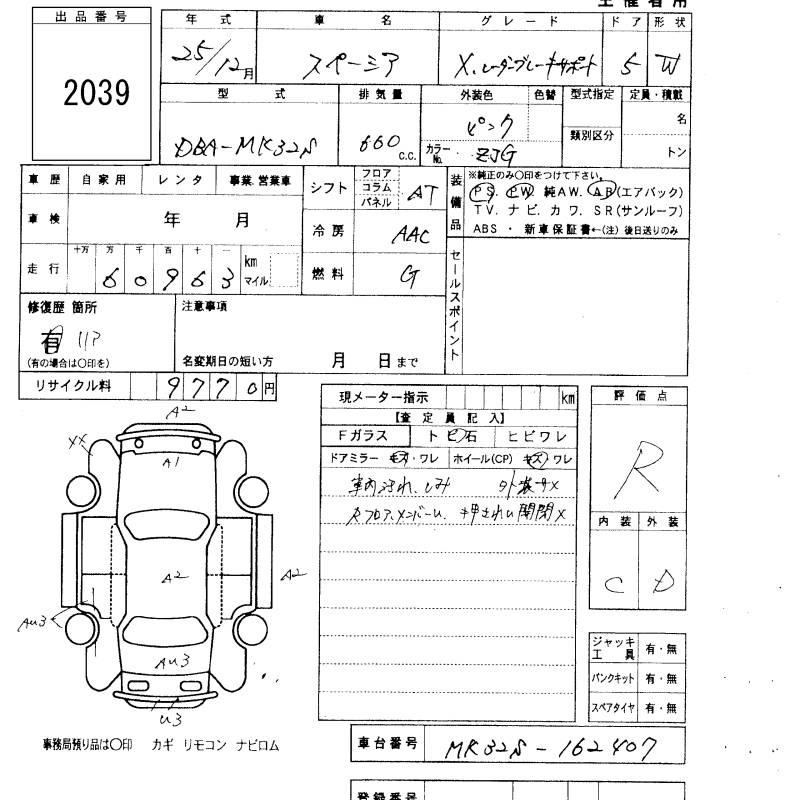 出品番号
2039
年式 車名 グレード ドア 形状
25/12月 スペーシア X.レーダーブレーキサポート 5 W
型式 排気量 外装色 色替 型式指定 定員・積載
DBA-MK32S 660 C.C. ピンク 類別区分 名
カラーNo. ZJG トン
車歴 自家用 レンタ 事業.営業車
シフト フロア コラム パネル AT
装備品 ※純正のみ○印をつけて下さい。
PS. PW. 純AW. AB(エアバック)
TV. ナビ. カワ. SR(サンルーフ)
ABS ・ 新車保証書←(注) 後日送りのみ
車検 年 月
冷房 AAC
走行 十万 万 千 百 十 一
60963 km マイル
燃料 G
セールスポイント
修復歴 箇所
有
(有の場合は○印を)
注意事項
名変期日の短い方 月 日まで
リサイクル料 9770円
現メーター指示 km
【査定員記入】
Fガラス トビ石 ヒビワレ
ドアミラー キズ・ワレ ホイール(CP) キズ ワレ
車内汚れ、しみ 外装キX
開閉X
評価点
R
内装 外装
C D
A2
XX
A1
A2
A2
AU3
AU3
U3
ジャッキ 工具 有・無
パンクキット 有・無
スペアタイヤ 有・無
事務局預り品は○印 カギ リモコン ナビロム
車台番号 MK32S-162407
登録番号